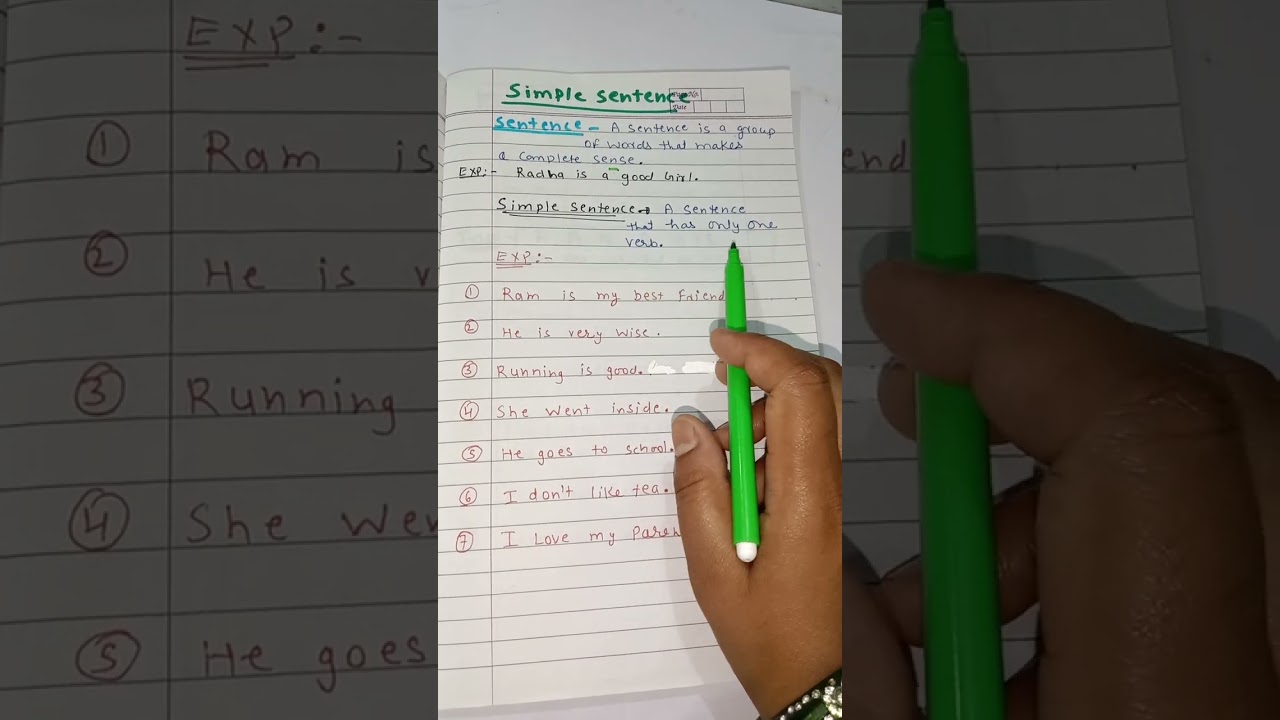 Simple Sentence
Sentence - A sentence is a group
of words that makes
a complete sense.
EXP:- Radha is a good Girl.
Simple sentence → A sentence
that has only one
verb.
EXP:-
① Ram is my best Friend
② He is very wise.
③ Running is good.
④ She went inside.
⑤ He goes to school.
⑥ I don't like tea.
⑦ I Love my